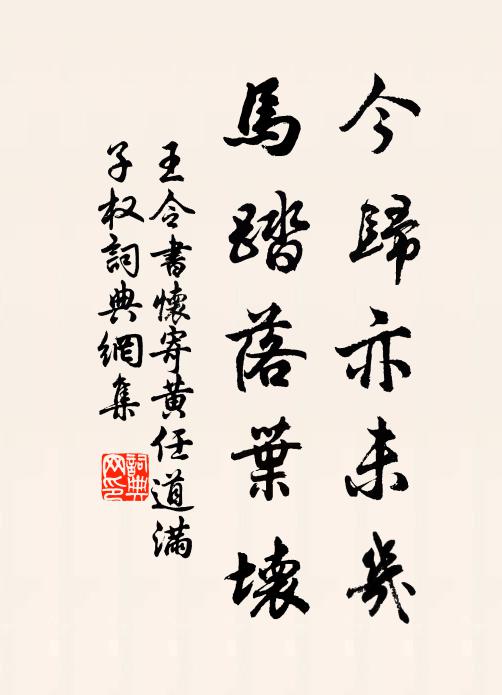 今歸亦未幾
馬踏落葉壞
王令書懷寄黄任道滿
子权詞典網集
詞典
网印